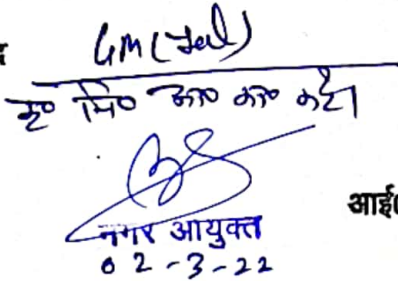 GM (Jal)
कृ० नि० आ० का० करें।
नगर आयुक्त
02-3-22
आई